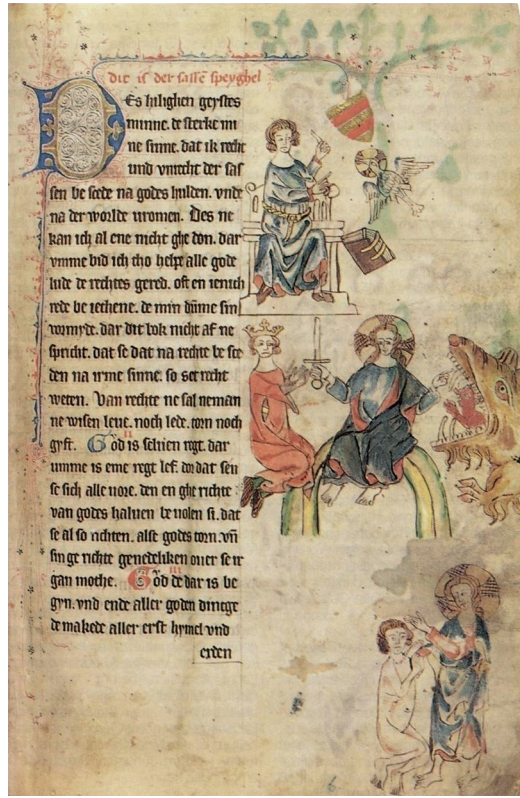 dit is der sassē speyghel
Des hilighen geystes
minne. de sterke mi
ne sinne. dat ik recht
unď vnrecht der sas
sen be scede na godes hulden. vnde
na der worlde vromen. Des ne
kan ich al ene nicht ghe don. dar
vmme bid ich tho helpe alle gode
lude de rechtes gered. oft en ienich
rede be ieghene. de min dūme sin
vormyde. dar dit bok nicht af ne
spricht. dat se dat na rechte be sce
den na irme sinne. so set recht
weten. Van rechte ne sal neman
ne wisen leue. noch lede. torn noch
gyft. God is seluen regt. dar
umme is eme regt lef. dat sen
se sich alle uore. den en ghe richte
van godes haluen be uolen si. dat
se al so richten. alse godes torn. vn̄
sin ge richte genedeliken ouer se ir
gan moche. God de dar is be
gyn. vnd ende aller goden dinege
de makede aller erst hymel vnd
erden